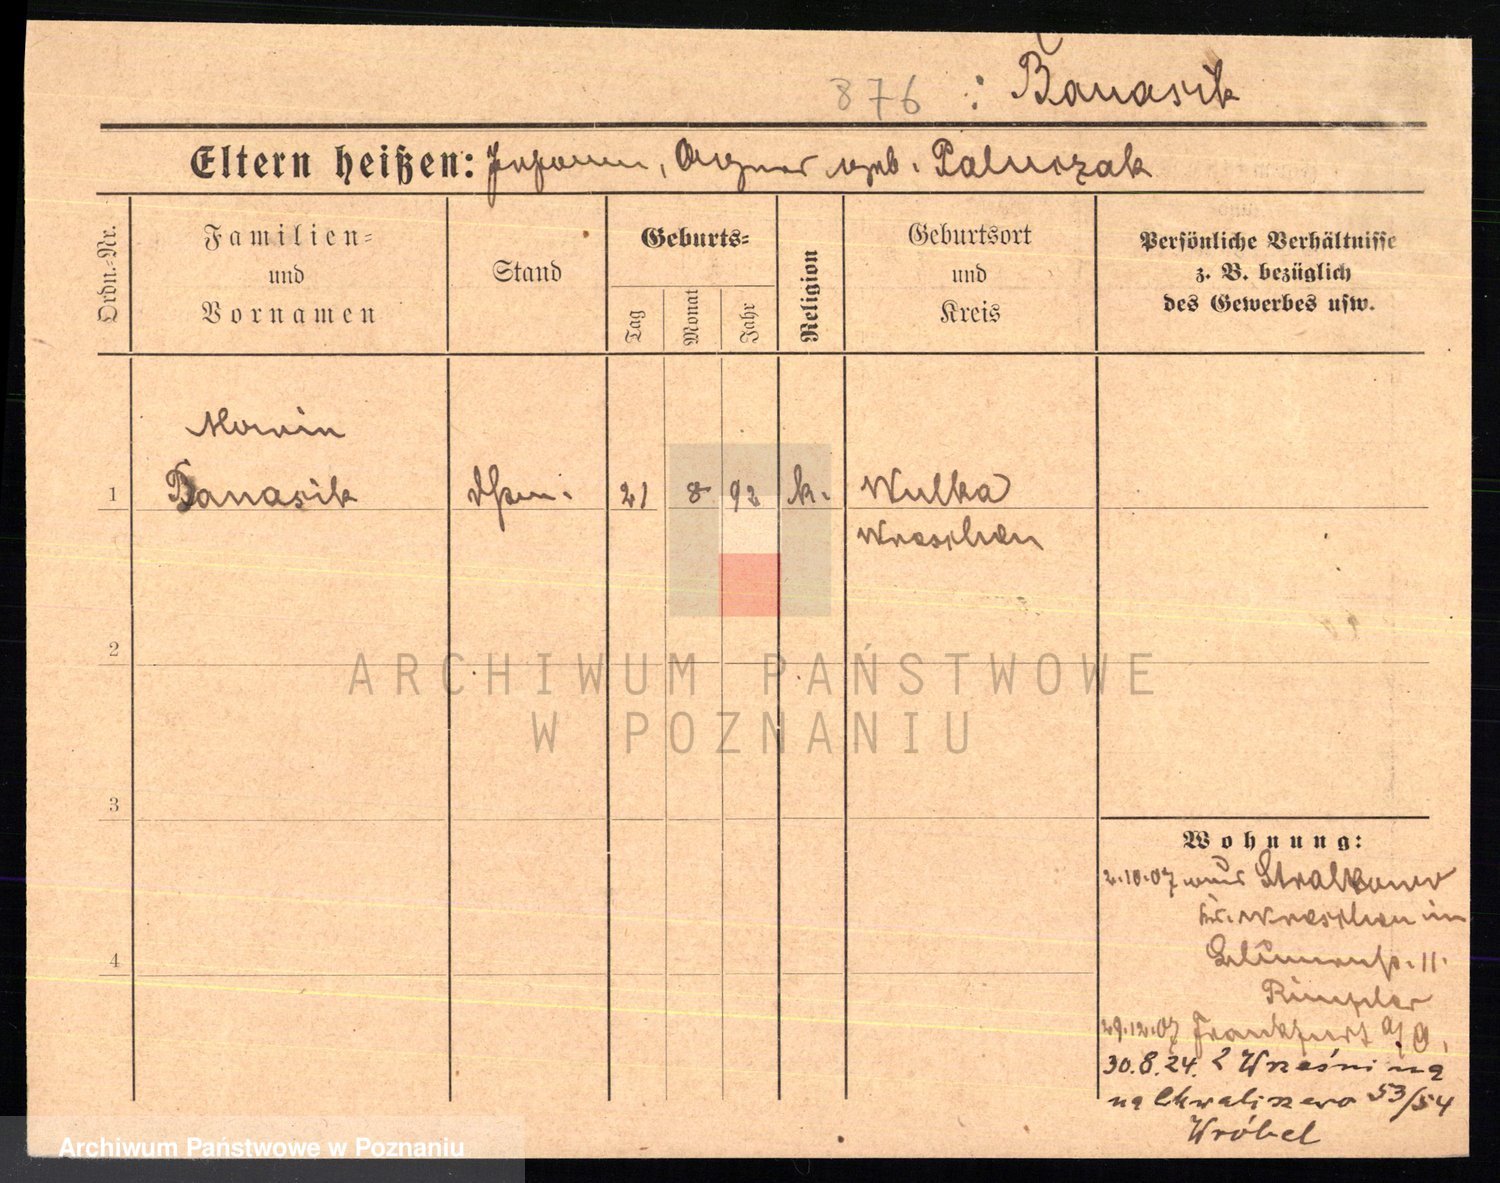 876 : Banasik
Eltern heißen: Johann, Agnes geb. Paluszak
Ordn.-Nr.
Familien-
und
Vornamen
Stand
Geburts-
Tag
Monat
Jahr
Religion
Geburtsort
und
Kreis
Persönliche Verhältnisse
z. B. bezüglich
des Gewerbes usw.
Banasik
1
21 8 92 k. Wulka
Wreschen
2
ARCHIWUM PAŃSTWOWE
W POZNANIU
3
Wohnung:
2.10.07 aus Stralkowo
Kr. Wreschen in
11.
4
29.12.07 Frankfurt a/O.
30.8.24. z Wrześni na
na Chwaliszewo 53/54
Wróbel
Archiwum Państwowe w Poznaniu